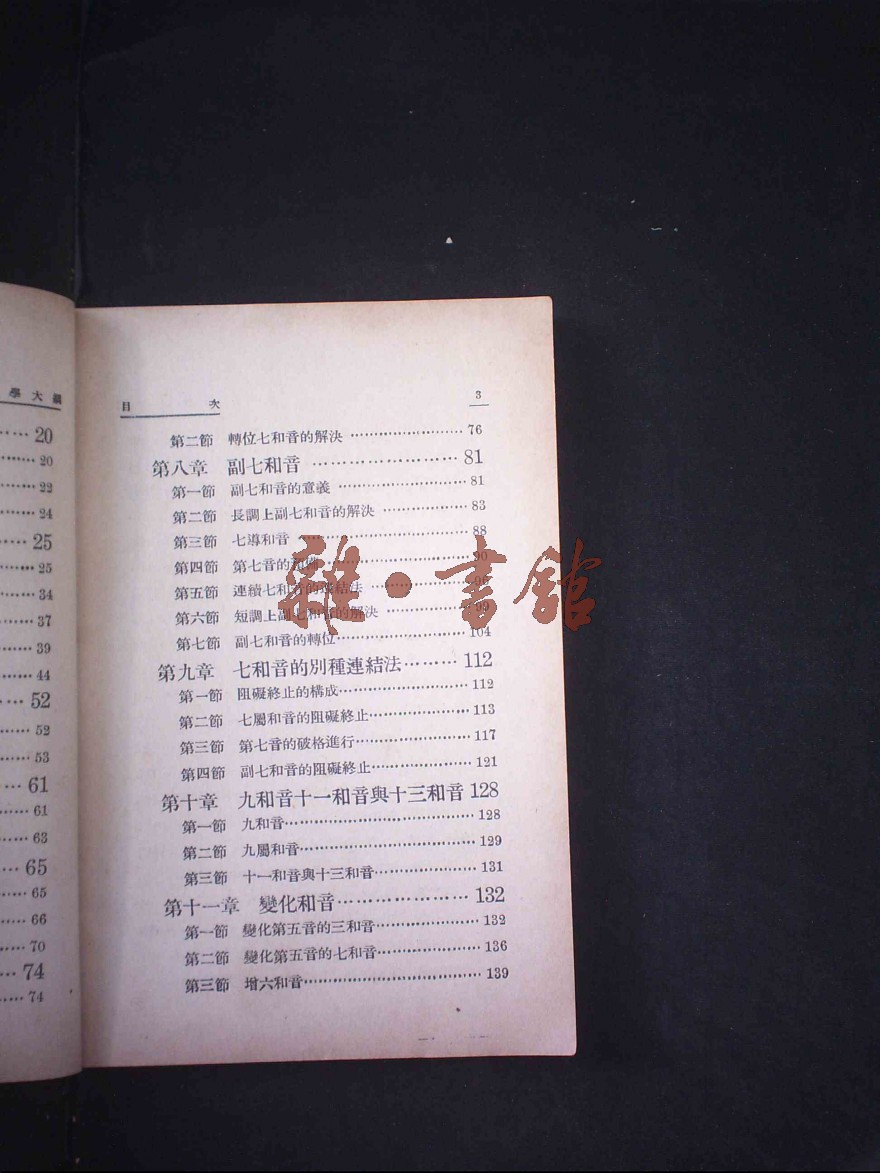 學大綱
20
20
22
24
25
25
34
37
39
44
52
52
53
61
61
63
65
65
66
70
74
74
目 次 3
第二節 轉位七和音的解決 76
第八章 副七和音 81
第一節 副七和音的意義 81
第二節 長調上副七和音的解決 83
第三節 七導和音 88
第四節 第七音的 90
第五節 連續七和音的連結法 96
第六節 短調上副七和音的解決 99
第七節 副七和音的轉位 104
第九章 七和音的別種連結法 112
第一節 阻礙終止的構成 112
第二節 七屬和音的阻礙終止 113
第三節 第七音的破格進行 117
第四節 副七和音的阻礙終止 121
第十章 九和音十一和音與十三和音 128
第一節 九和音 128
第二節 九屬和音 129
第三節 十一和音與十三和音 131
第十一章 變化和音 132
第一節 變化第五音的三和音 132
第二節 變化第五音的七和音 136
第三節 增六和音 139
雜·書館